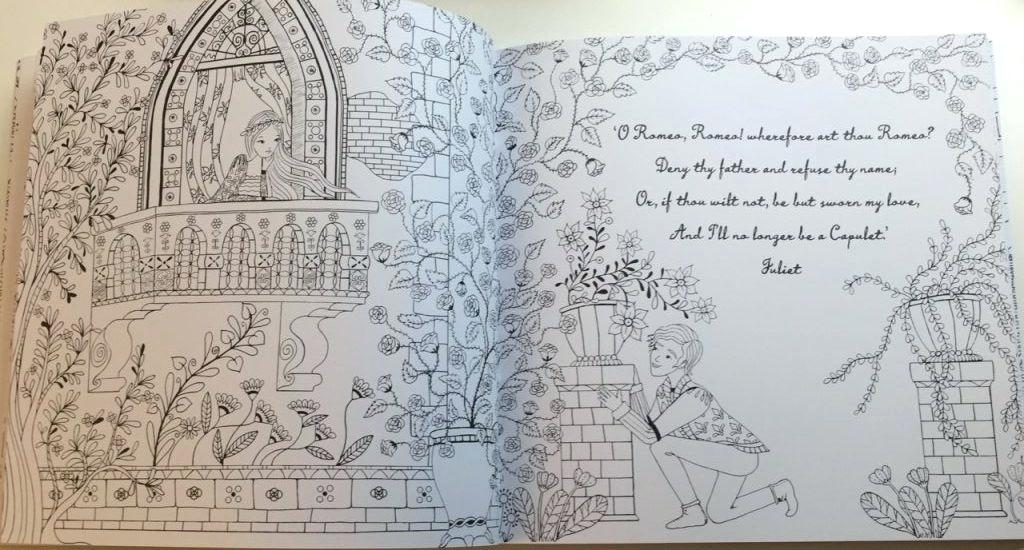 'O Romeo, Romeo! wherefore art thou Romeo?
Deny thy father and refuse thy name;
Or, if thou wilt not, be but sworn my love,
And I'll no longer be a Capulet.'
Juliet